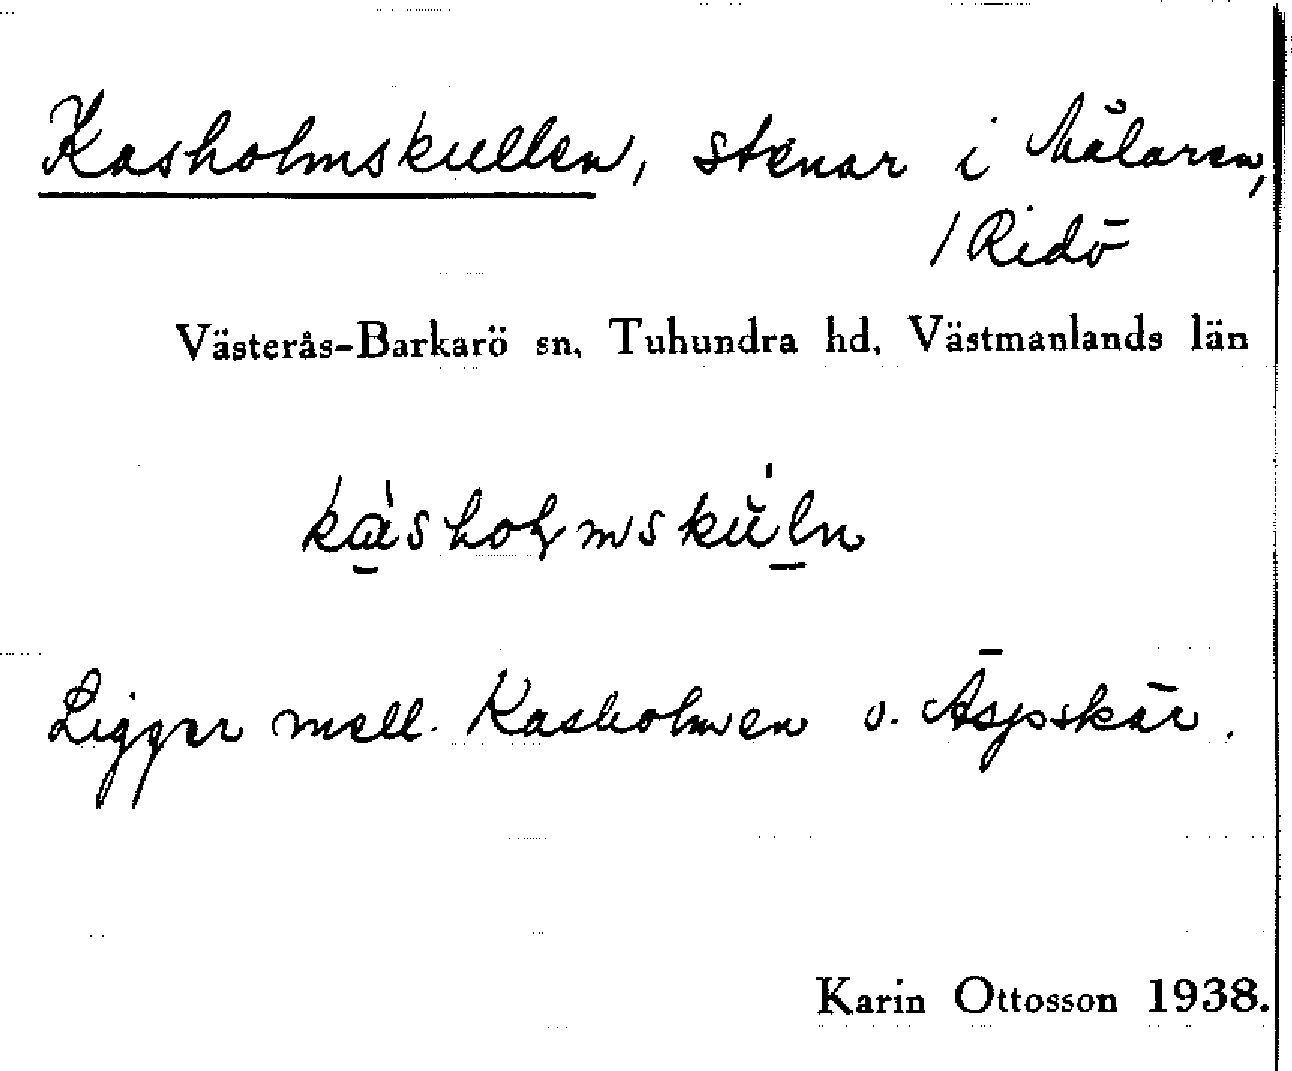 Kasholmskullen, stenar i Mälaren,
/ Ridö
Västerås-Barkarö sn, Tuhundra hd, Västmanlands län
Ligger mell. Kasholmen o. Äspskär.
Karin Ottosson 1938.